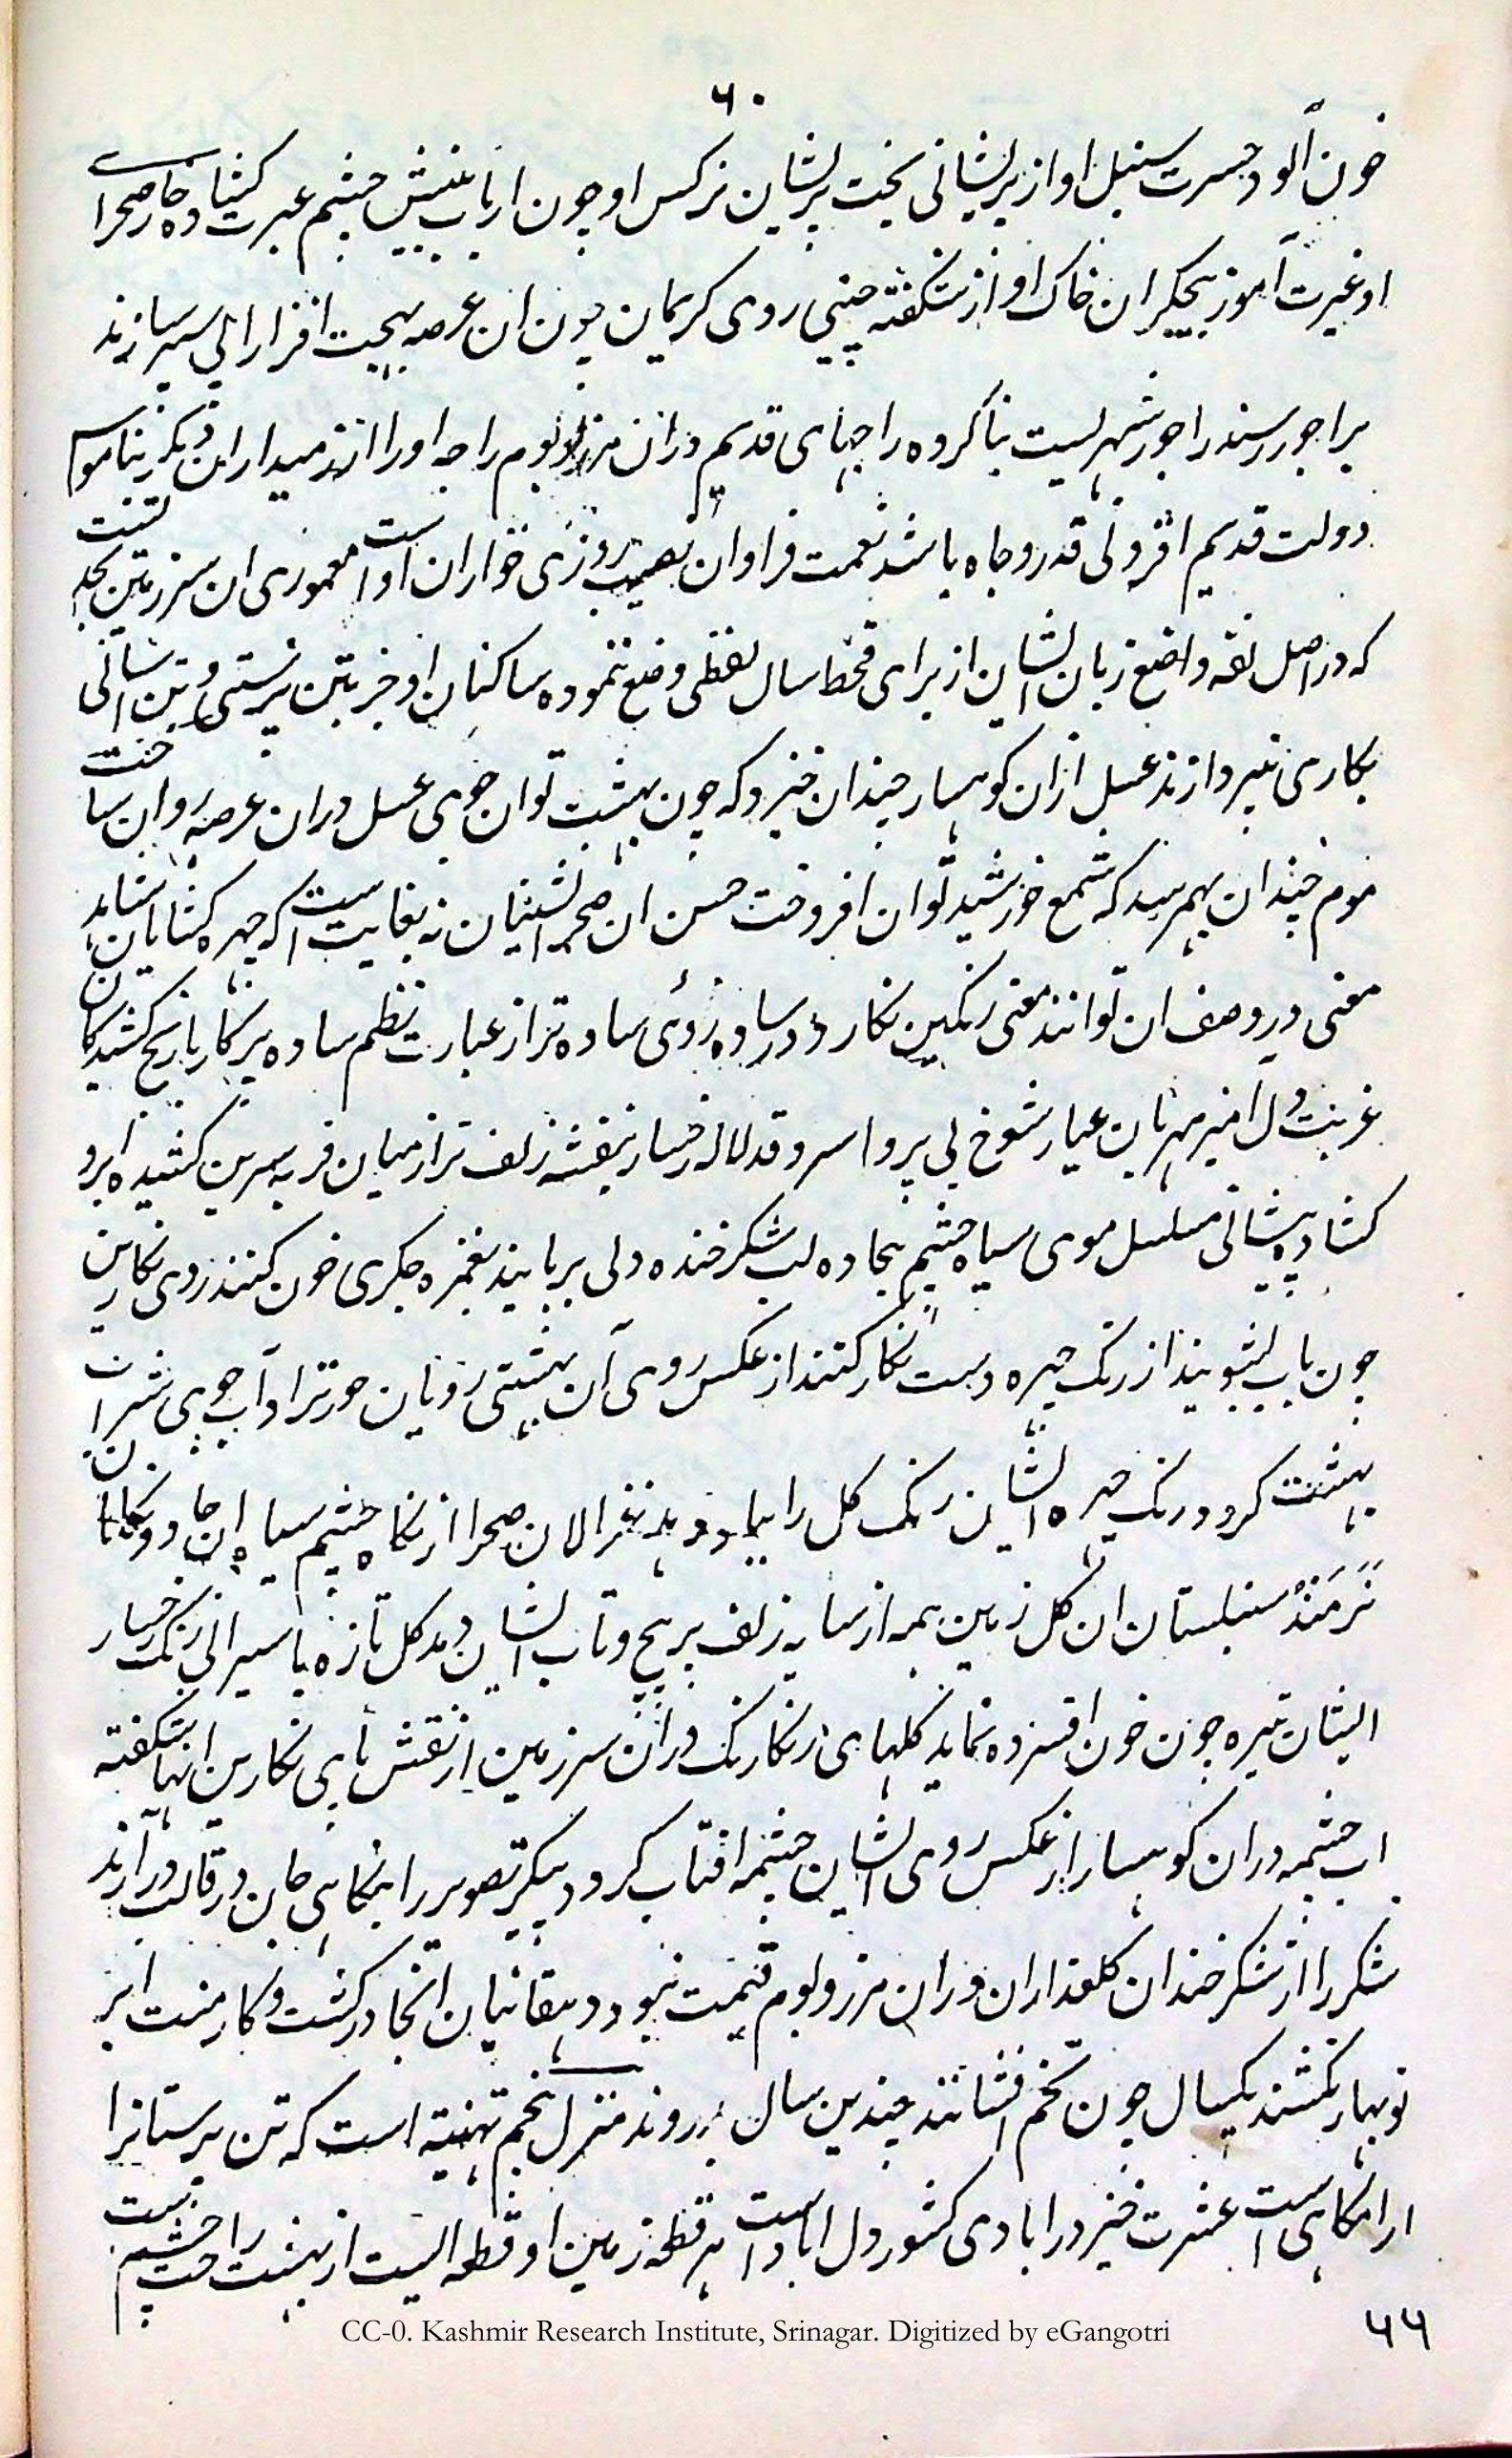 ۶۰
خون آلود حسرت سنبل او از پریشانی بخت پریشان نرکس او چون ارباب بینش چشم عبرت کشاده خار صحرای
او غیرت آموز بیجکران خاک او از شکفته جبینی روی کریمان چون ان عرصه بهجت افزا را پی سپر سازند
براجور رسند راجور شهریست بنا کرده راجهای قدیم دران مرز و بوم راجه او را از زمینداران دیکر بناموس
دولت قدیم افزونی قدر و جاه باشد نعمت فراوان نصیب روزی خواران اوست معموری ان سرزمین بحدیست
که در اصل لغه واضع زبان ایشان از برای قحط سال لفظی وضع ننموده ساکنان او جز بتن پرستی و تن اسانی
بکاری نپردازند عسل ازان کوهسار چندان خیزد که چون بهشت توان جوی عسل دران عرصه روان ساخت
موم چندان بهم رسد که شمع خورشید توان افروخت حسن ان صحرانشینان نه بغایت است که چهره کشایان
معنی در وصف ان توانند معنی رنکین نکارد در ساده روئی ساده تر از عبارت نظم ساده پرکار
غریب دل آمیز مهربان عیار شوخ بی پروا سرو قد لاله رخسار بنفشه زلف تر از میان فربه سرین کشیده ابرو
کشاده پیشانی مسلسل موی سیاه چشم بجاده لب شکر خنده دلی بربایند بغمزه جکری خون کنند روی نکارین
چون باب بشویند از رنک چهره دست نکار کنند از عکس روی آن بهشتی رویان حورنژاد آب جوی شراب
بهشت کرد و رنک چهره ایشان رنک کل را بباد دهد غزالان صحرا از نکاه چشم سیاه ان جادو نکاهان
نَرَمَنْد سنبلستان ان کل زمین همه از سایه زلف پر پیچ و تاب ایشان دمد کل تازه با سیرابی رنک رخسار
ایشان تیره چون خون افسرده نماید کلهای رنکارنک دران سرزمین از نقش پای نکارین انها شکفته
اب چشمه دران کوهسار از عکس روی ایشان چشمه افتاب کردد پیکر تصویر را بنکاهی جان در قالب درآرند
شکر را از شکر خندان کلعذاران دران مرز و بوم قیمت نبود دهقانیان انجا در کشت و کار منت ابر
نوبهار نکشند یکسال چون تخم افشانند چندین سال بدروند منزل پنجم تهنیته است که تن پرستانرا
ارامکاهی است عشرت خیز در ابادی کشور دل اباد است هر قطعه زمین او قطعه ایست از بهشت راحت
۶۶
CC-0. Kashmir Research Institute, Srinagar. Digitized by eGangotri